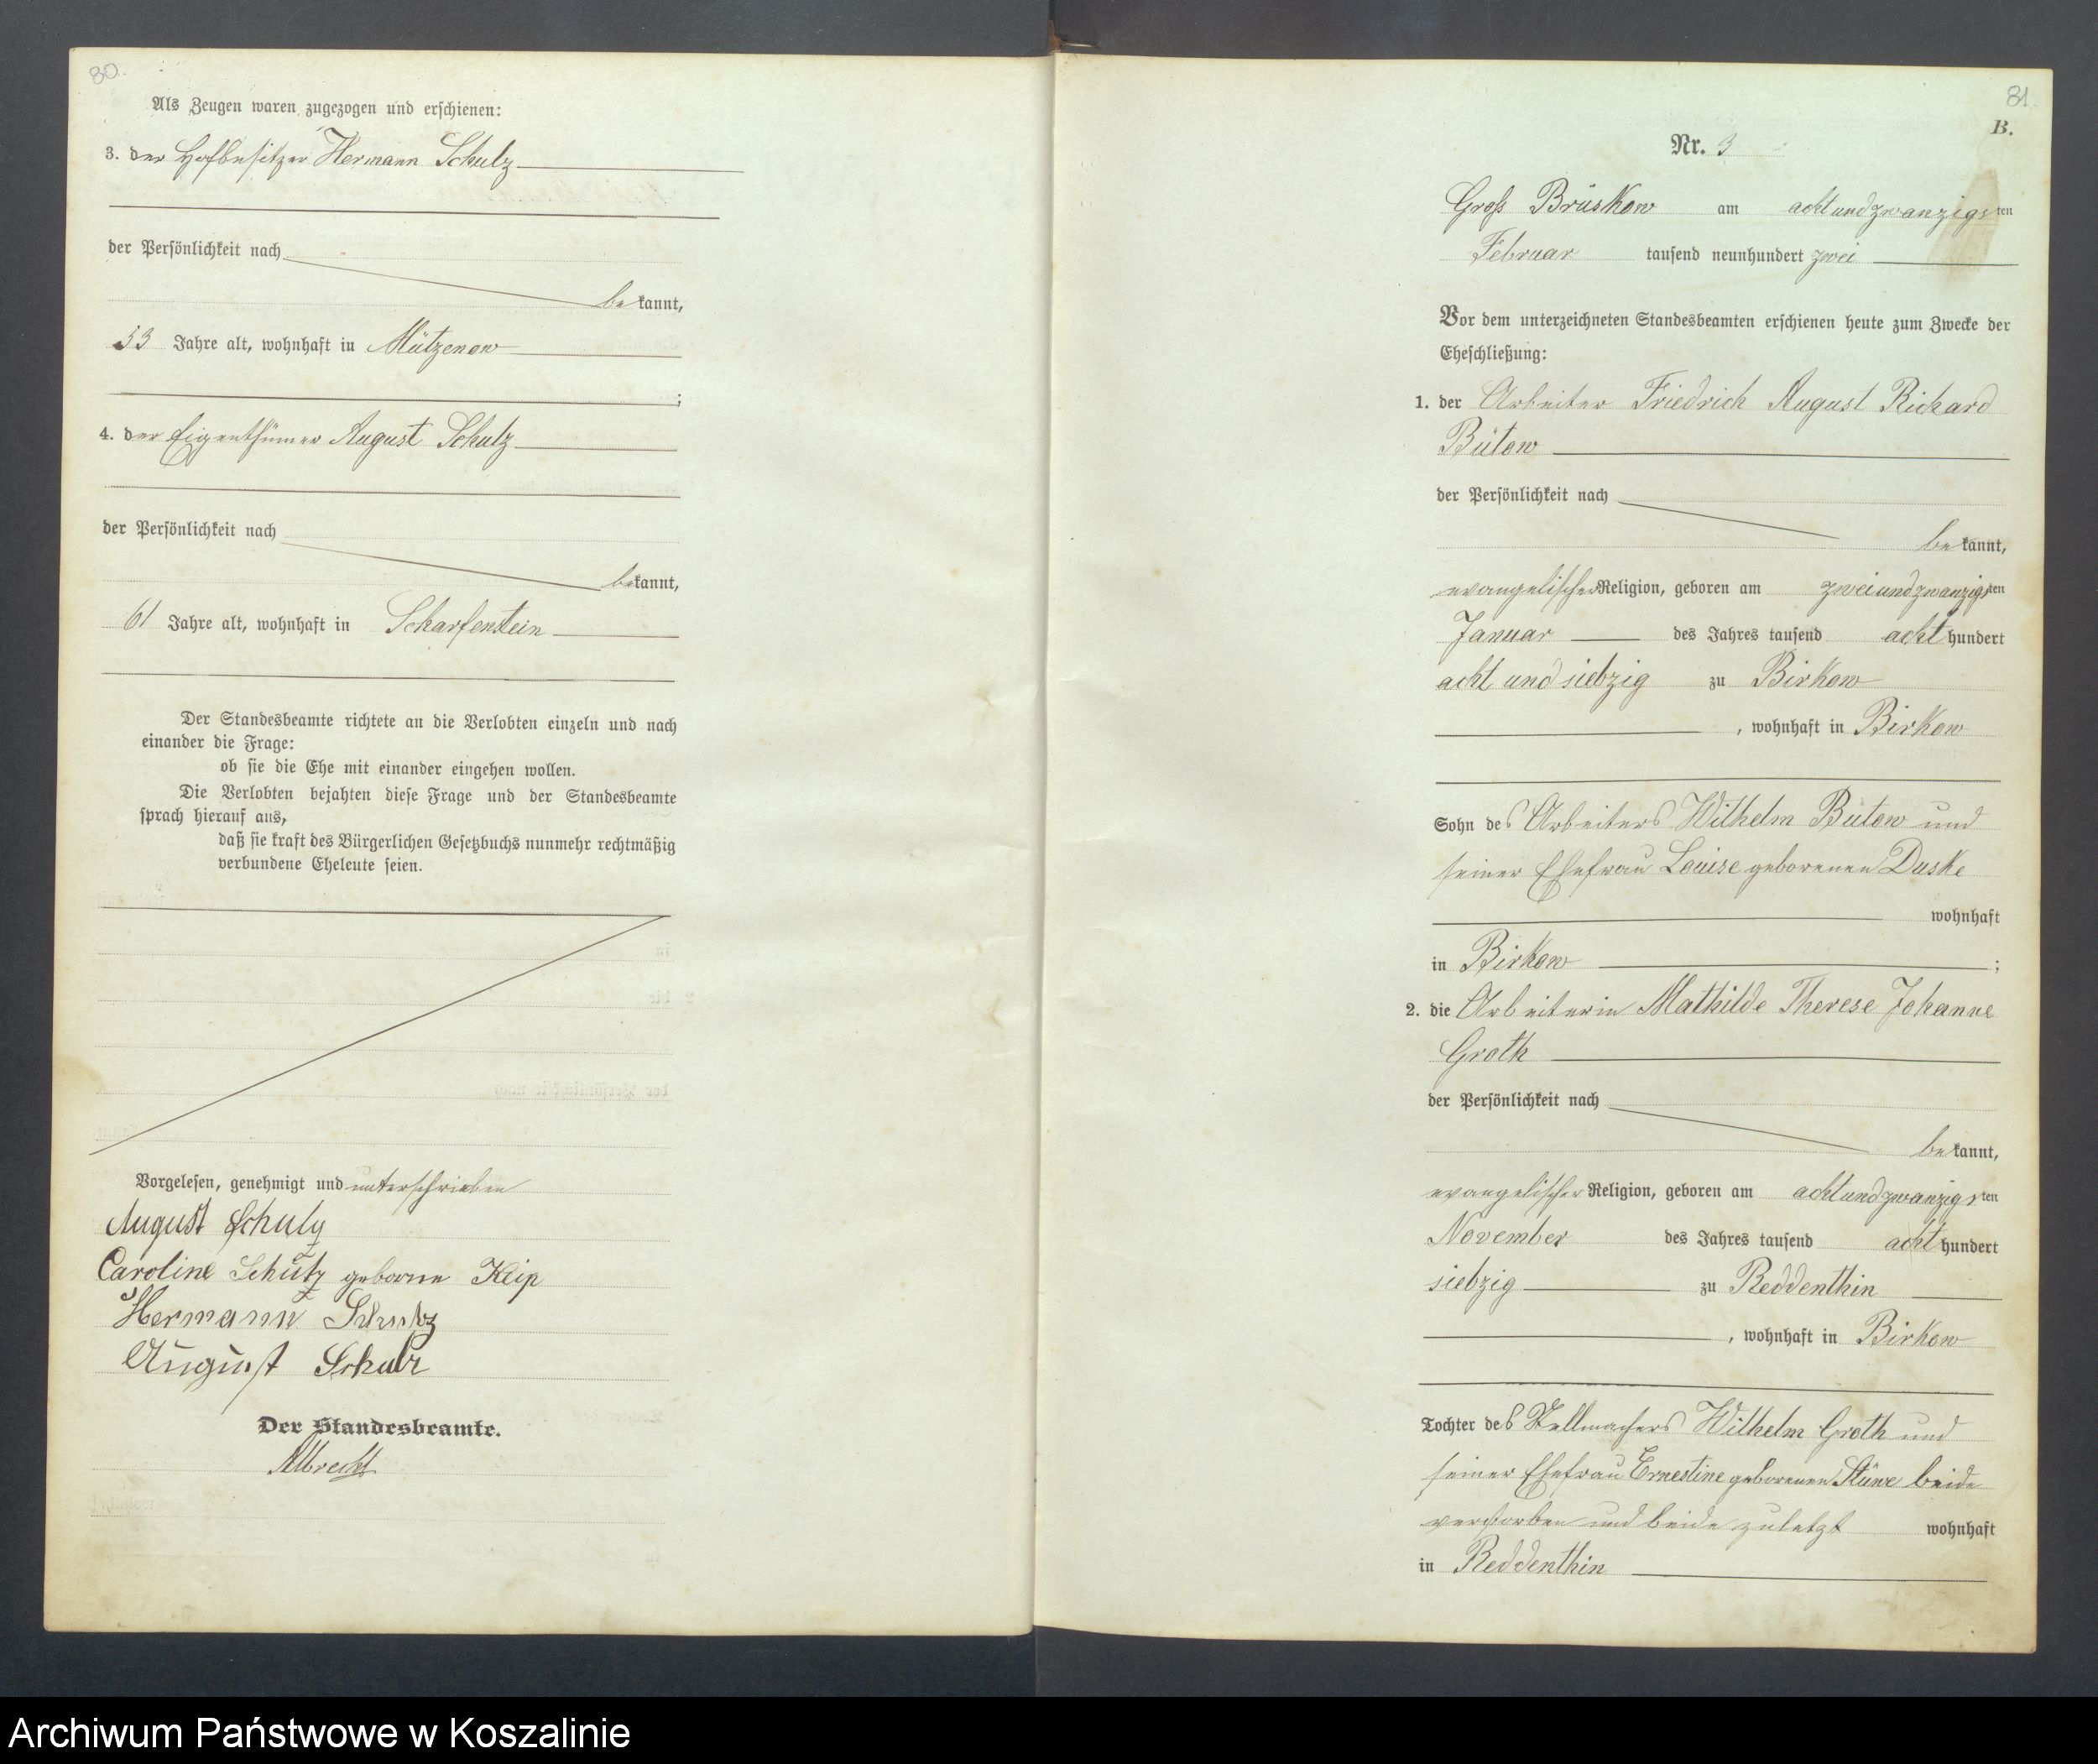 80.
Als Zeugen waren zugezogen und erschienen:
3. der Hofbesitzer Hermann Schulz
der Persönlichkeit nach
bekannt,
53 Jahre alt, wohnhaft in Mützenow
;
4. der Eigenthümer August Schulz
der Persönlichkeit nach
bekannt,
61 Jahre alt, wohnhaft in Scharfenstein
Der Standesbeamte richtete an die Verlobten einzeln und nach
einander die Frage:
ob sie die Ehe mit einander eingehen wollen.
Die Verlobten bejahten diese Frage und der Standesbeamte
sprach hierauf aus,
daß sie kraft des Bürgerlichen Gesetzbuchs nunmehr rechtmäßig
verbundene Eheleute seien.
Vorgelesen, genehmigt und unterschrieben
August Schulz
Caroline Schulz geborne Keip
Hermann Schulz
August Schulz
Der Standesbeamte.
Albrecht
81.
B.
Nr. 3
Groß Brüskow am achtundzwanzigsten
Februar tausend neunhundert zwei
Vor dem unterzeichneten Standesbeamten erschienen heute zum Zwecke der
Eheschließung:
1. der Arbeiter Friedrich August Richard
Bütow
der Persönlichkeit nach
bekannt,
evangelischer Religion, geboren am zweiundzwanzigsten
Januar des Jahres tausend achthundert
acht und siebzig zu Birkow
, wohnhaft in Birkow
Sohn des Arbeiters Wilhelm Bütow und
seiner Ehefrau Louise geborenen Duske
wohnhaft
in Birkow ;
2. die Arbeiterin Mathilde Therese Johanne
Groth
der Persönlichkeit nach
bekannt,
evangelischer Religion, geboren am achtundzwanzigsten
November des Jahres tausend achthundert
siebzig zu Reddenthin
, wohnhaft in Birkow
Tochter des Stellmachers Wilhelm Groth und
seiner Ehefrau Ernestine geborenen Stüwe beide
verstorben und beide zuletzt wohnhaft
in Reddenthin
Archiwum Państwowe w Koszalinie